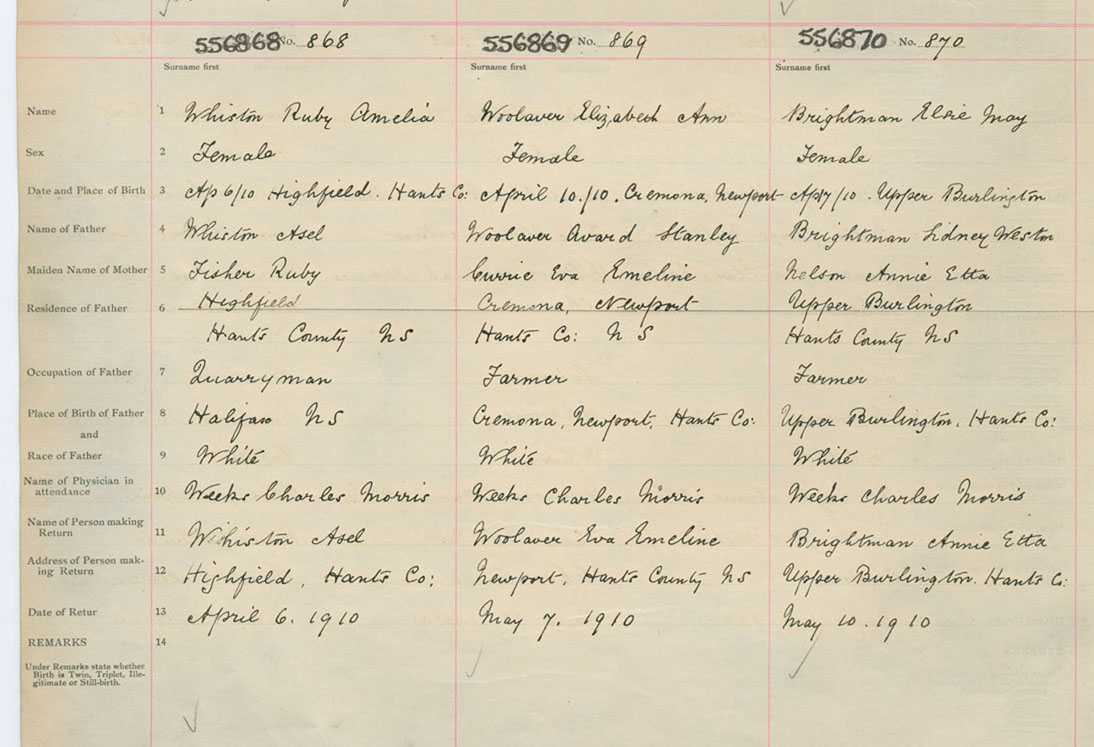 556868 No. 868 556869 No. 869 556870 No. 870
Surname first Surname first Surname first
Name 1 Whiston Ruby Amelia Woolaver Elizabeth Ann Brightman Elsie May
Sex 2 Female Female Female
Date and Place of Birth 3 Ap 6/10 Highfield. Hants Co: April 10./10. Cremona, Newport Ap17/10. Upper Burlington
Name of Father 4 Whiston Asel Woolaver Avard Stanley Brightman Sidney Weston
Maiden Name of Mother 5 Fisher Ruby Currie Eva Emeline Nelson Annie Etta
Residence of Father 6 Highfield Cremona, Newport Upper Burlington
Hants County NS Hants Co: N S Hants County NS
Occupation of Father 7 Quarryman Farmer Farmer
Place of Birth of Father 8 Halifax NS Cremona, Newport, Hants Co: Upper Burlington, Hants Co:
and
Race of Father 9 White White White
Name of Physician in
attendance 10 Weeks Charles Morris Weeks Charles Morris Weeks Charles Morris
Name of Person making
Return 11 Whiston Asel Woolaver Eva Emeline Brightman Annie Etta
Address of Person mak-
ing Return 12 Highfield, Hants Co: Newport, Hants County NS Upper Burlington. Hants Co:
Date of Retur 13 April 6. 1910 May 7. 1910 May 10. 1910
REMARKS 14
Under Remarks state whether
Birth is Twin, Triplet, Ille-
gitimate or Still-birth.